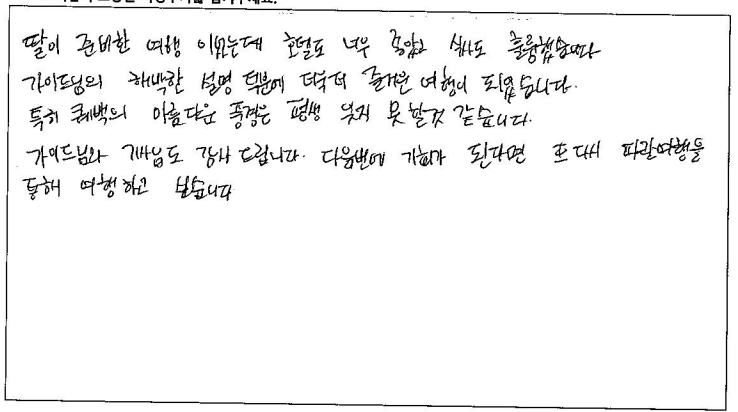 딸이 준비한 여행 이였는데 호텔도 너무 좋았고 식사도 훌륭했습니다
가이드님의 해박한 설명 덕분에 더욱더 즐거운 여행이 되었습니다.
특히 퀘백의 아름다운 풍경은 평생 잊지 못할것 같습니다.
가이드님과 기사님도 감사 드립니다. 다음번에 기회가 된다면 또 다시 파란여행을
통해 여행하고 싶습니다